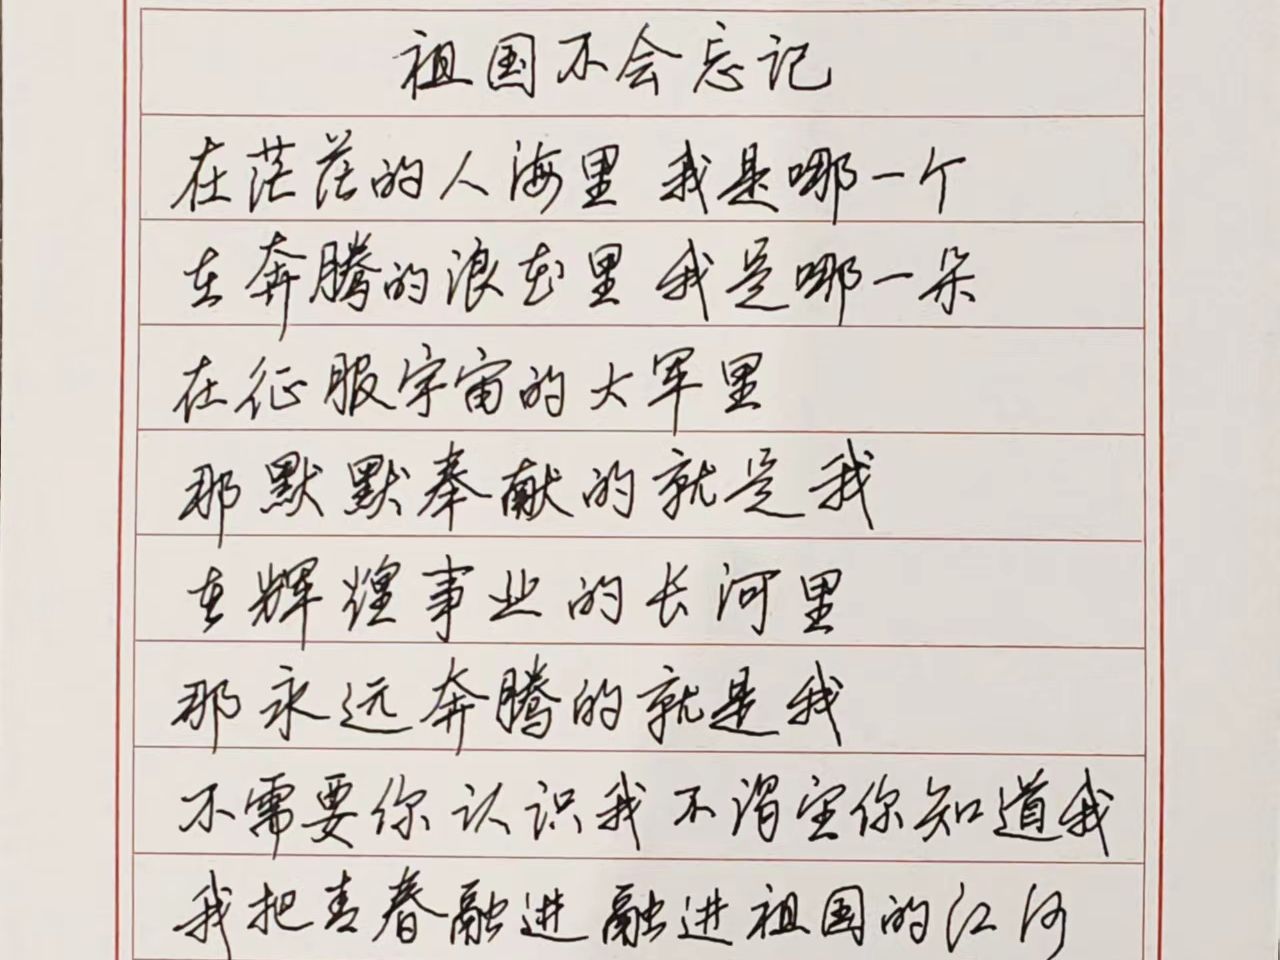 祖国不会忘记
在茫茫的人海里 我是哪一个
在奔腾的浪花里 我是哪一朵
在征服宇宙的大军里
那默默奉献的就是我
在辉煌事业的长河里
那永远奔腾的就是我
不需要你认识我 不渴望你知道我
我把青春融进 融进祖国的江河